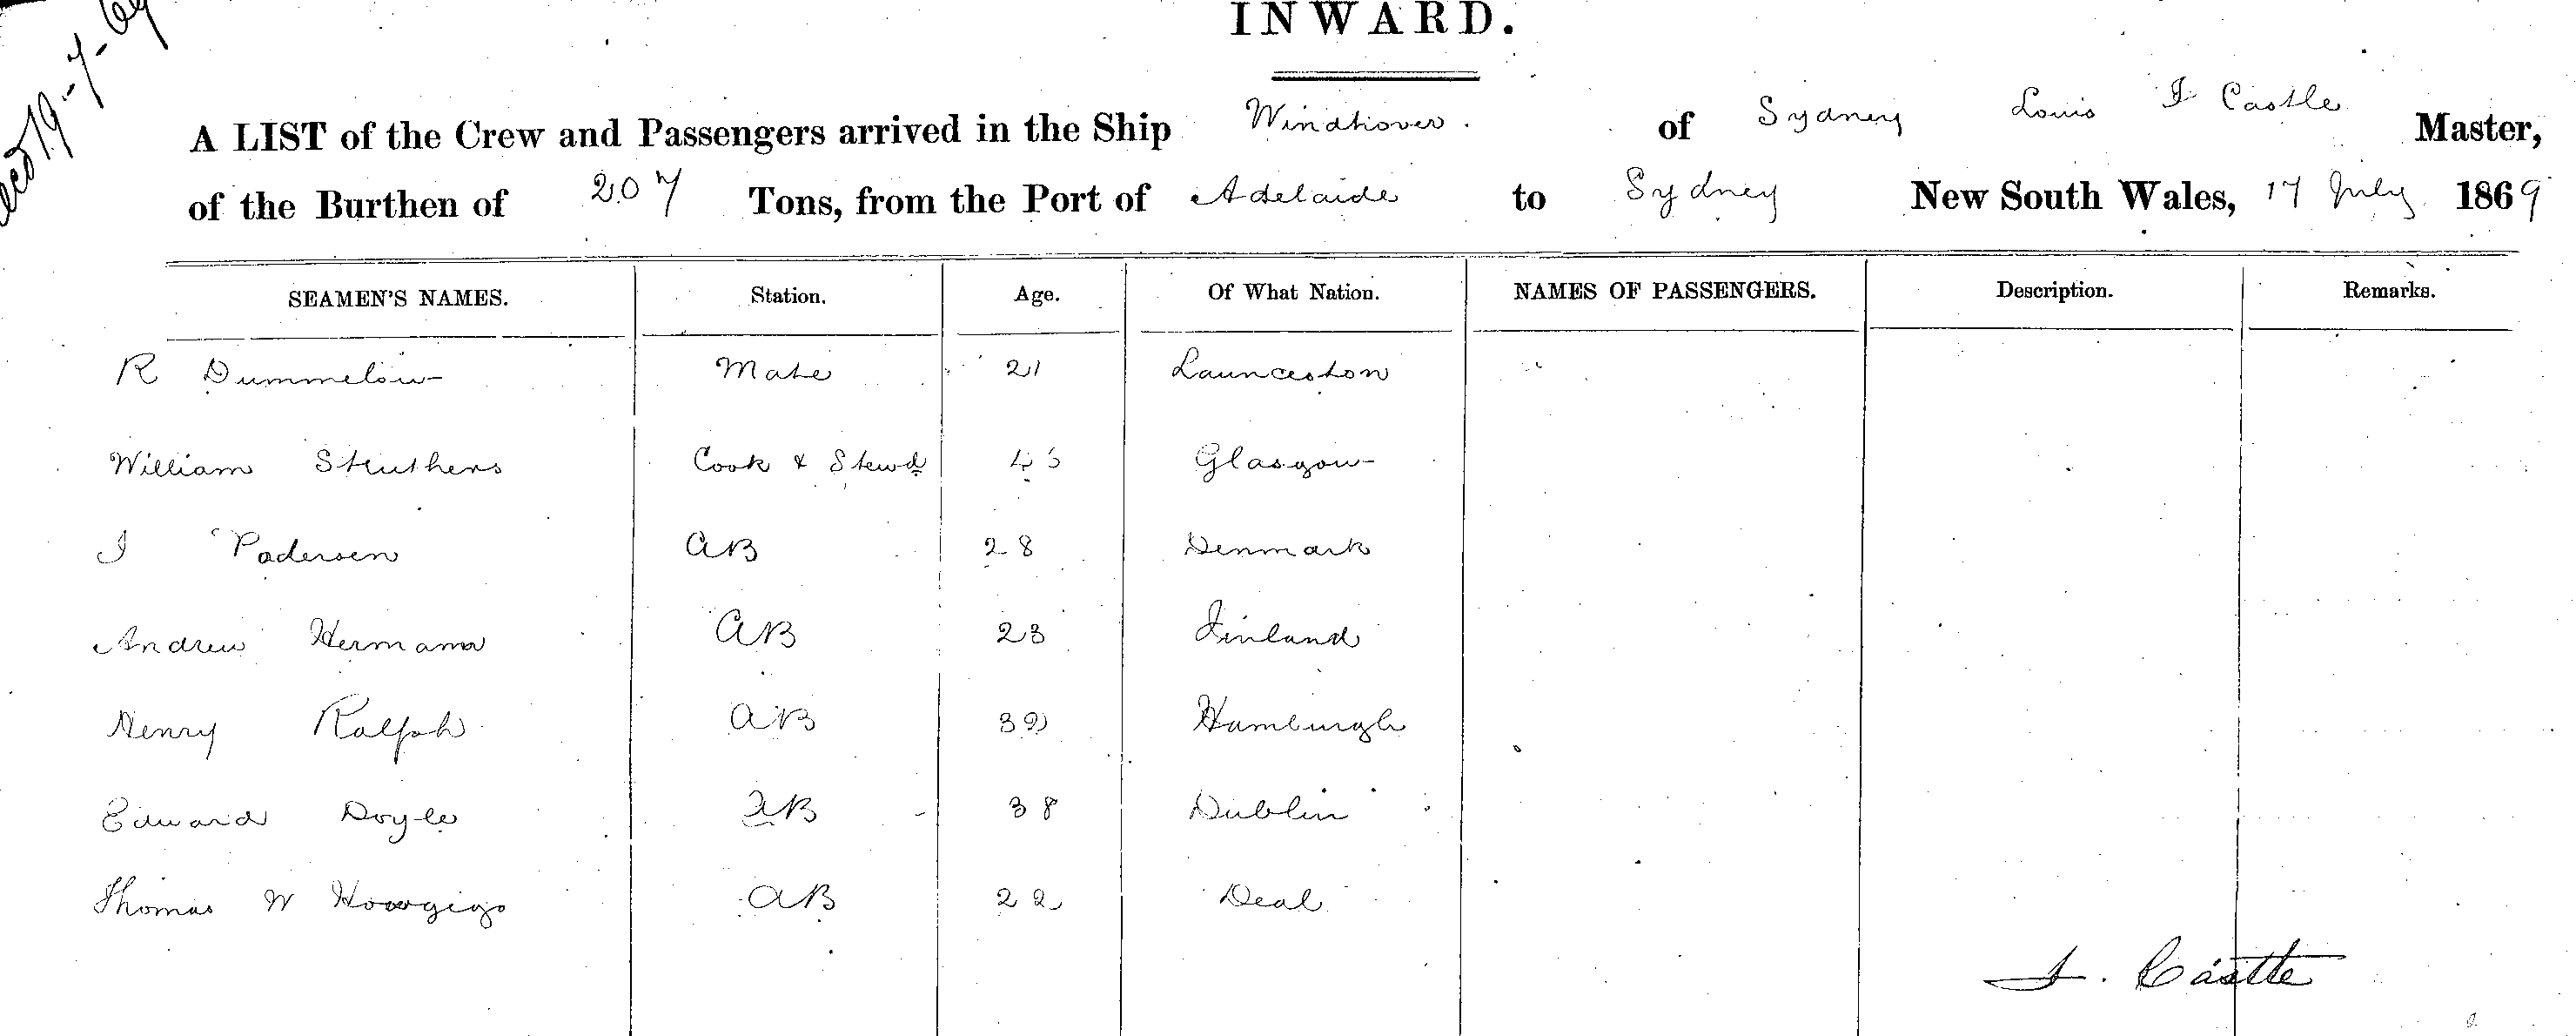 INWARD.
A LIST of the Crew and Passengers arrived in the Ship Windhover. of Sydney Louis I Castle Master,
of the Burthen of 207 Tons, from the Port of Adelaide to Sydney New South Wales, 17 July 1869
SEAMEN'S NAMES. Station. Age. Of What Nation. NAMES OF PASSENGERS. Description. Remarks.
R Dummelow Mate 21 Launceston
William Struthers Cook & Stewd Glasgow
I Padersen AB 28 Denmark
Andrew Hermann AB 23 Finland
Henry Ralph AB 32 Hamburgh
Edward Doyle AB 38 Dublin
Thomas W AB 22 Deal
Castle